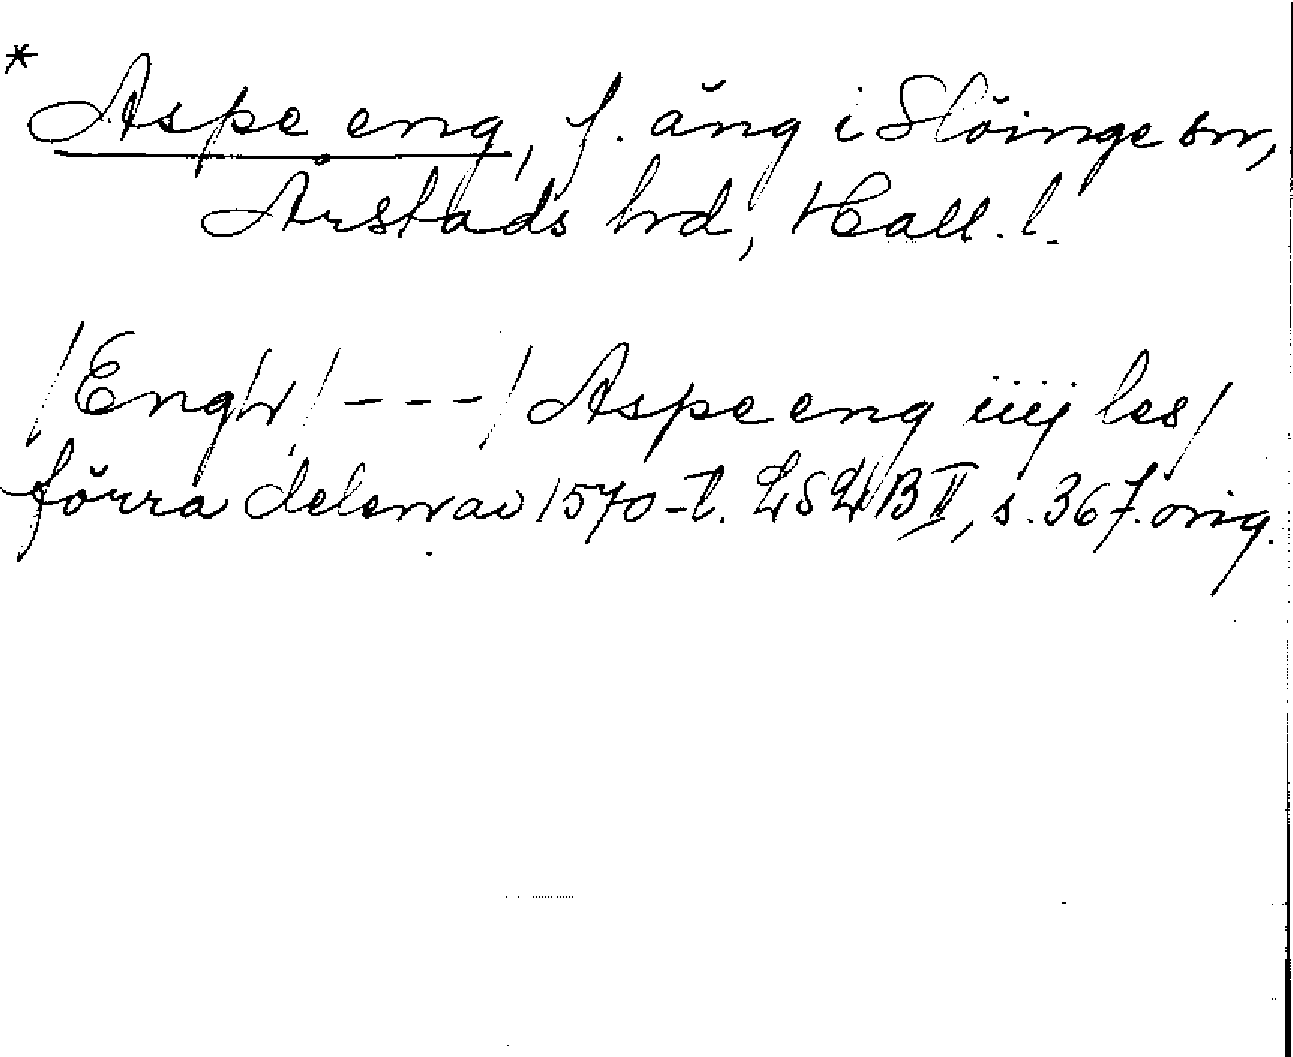 * Aspe eng, f. äng i Slöinge sn,
Årstads hd, Hall. l.
/Engh/ --- / Aspe eng iiij les/
förra delen av 1570-t. LSLJB II, s. 367. orig.